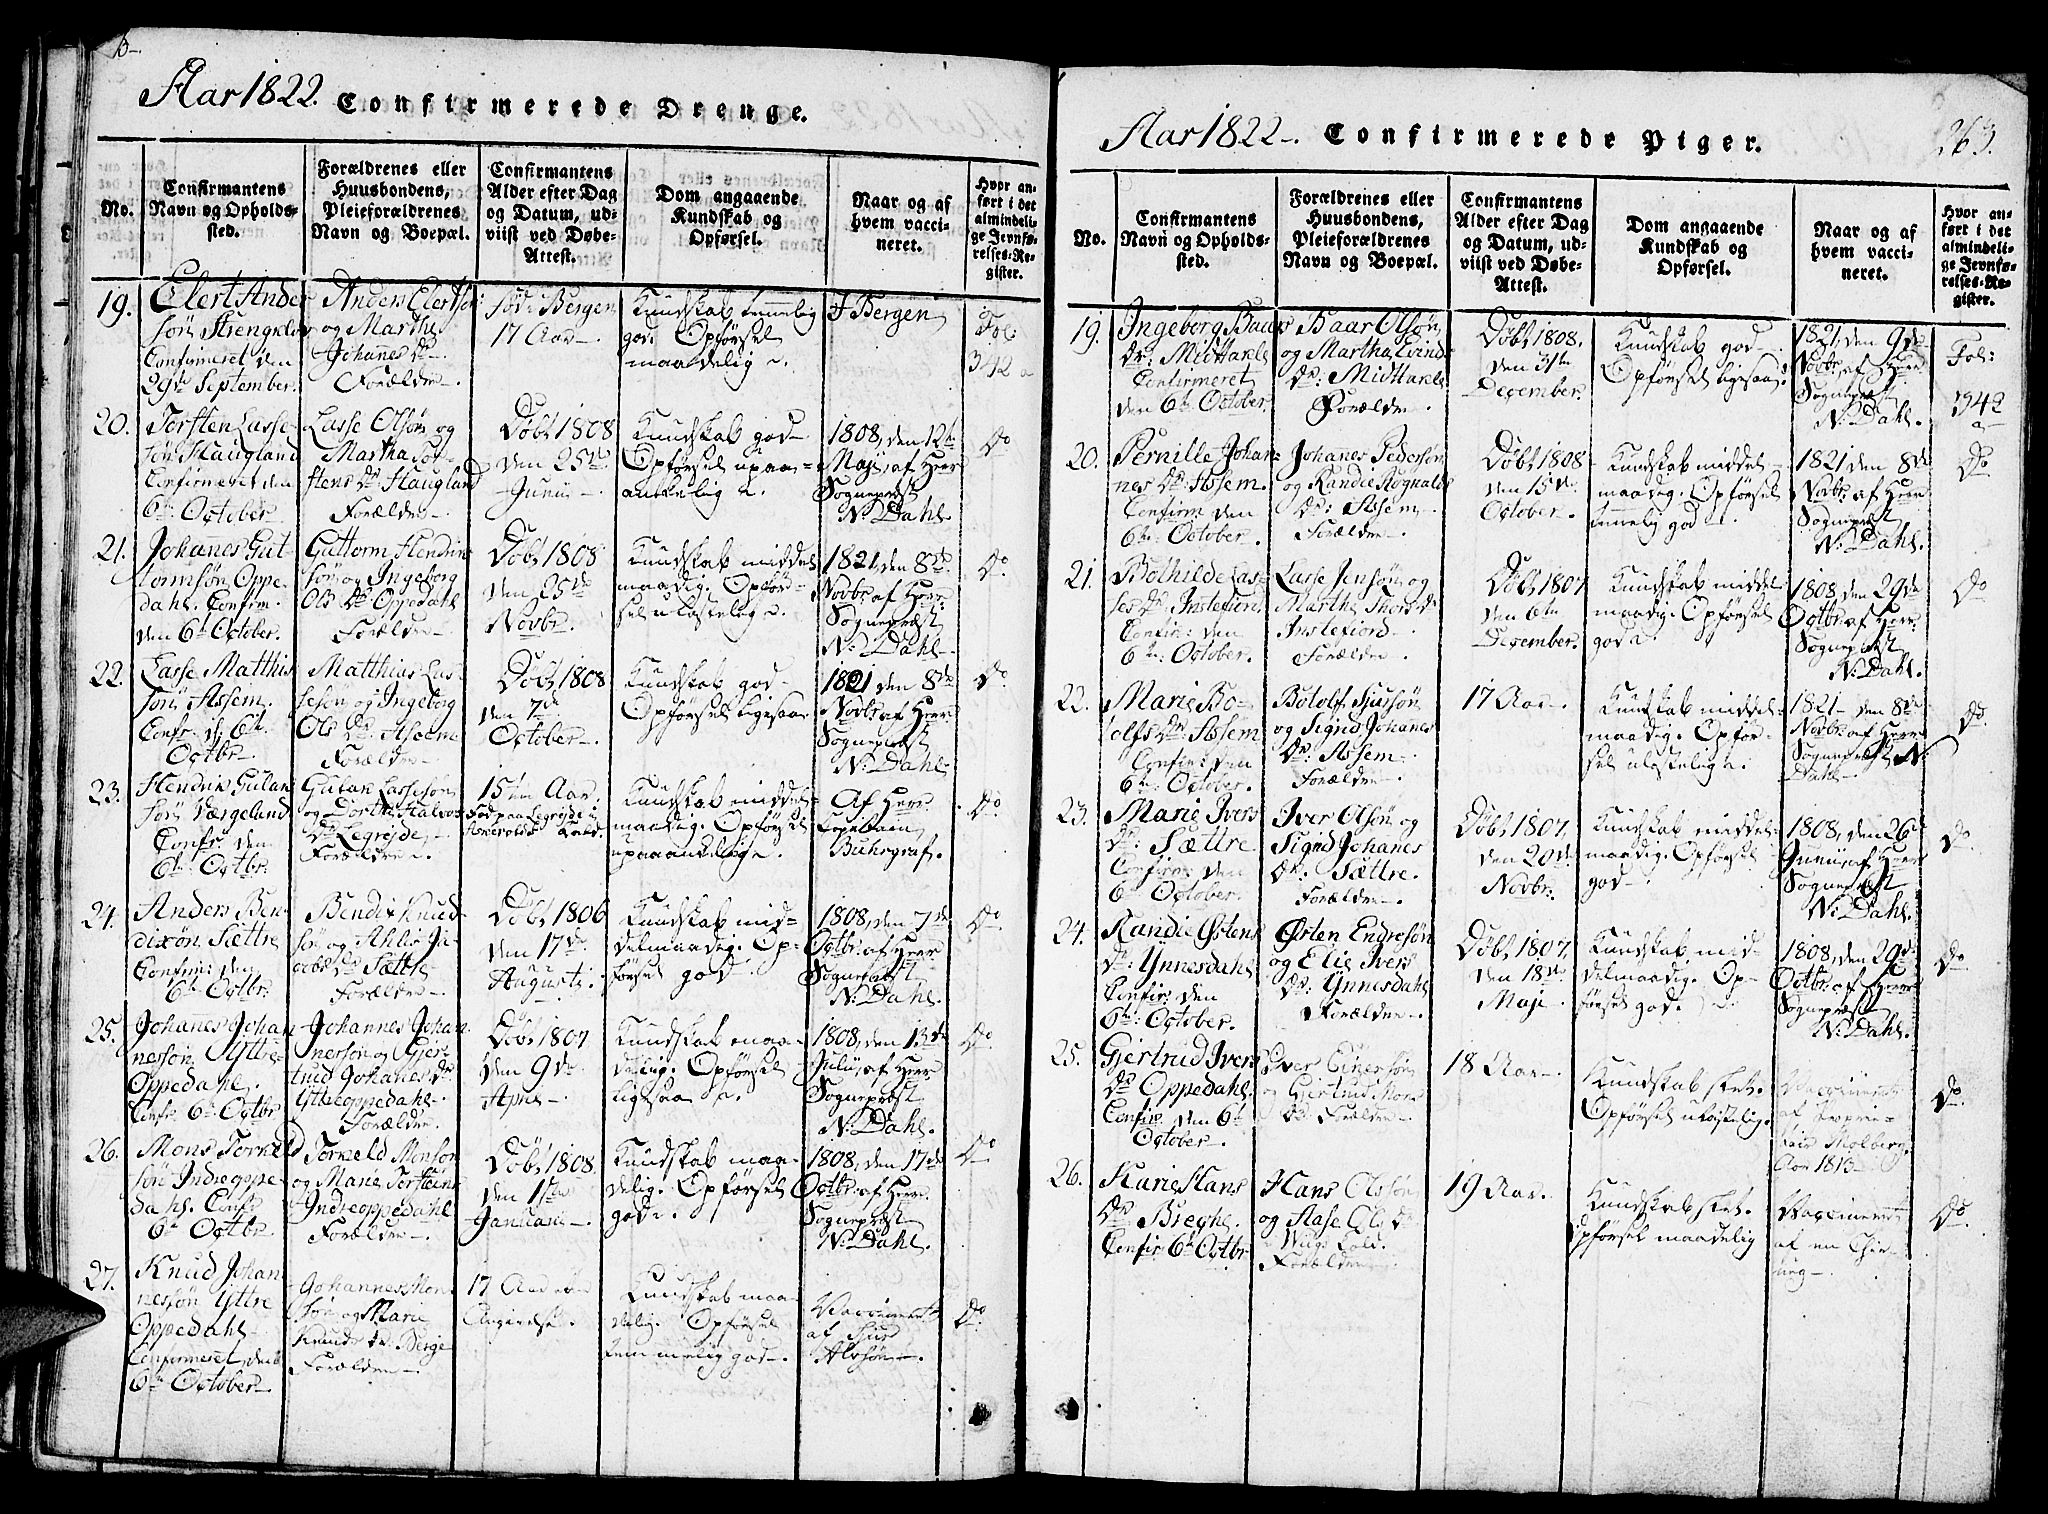 Aar 1822. Confirmerede Drenge.
No.
Confirmantens
Navn og Opholds-
sted.
Forældrenes eller
Huusbondens,
Pleieforældrenes
Navn og Boepæl.
Confirmantens
Alder efter Dag
og Datum, ud-
viist ved Døbe-
Attest.
Dom angaaende
Kundskab og
Opførsel.
Naar og af
hvem vacci-
neret.
Hvor an-
ført i det
almindeli-
ge Jevnfø-
relses-Re-
gister.
19.
Elert Ander
søn
Confirmeret den
29de September.
Anders Elertsøn
og Marthe
Johannes Dr
Forældre
fød: Bergen
17 Aar
Kundskab temmelig
god. Opførsel
maadelig
I Bergen
Fol:
342 a
20.
Torsten Lasse-
søn Haugland
Confirmeret den
6te October
Lasse Olsøn og
Martha Tor-
stens Dr Haugland
Forældre
Døbt 1808
den 25de
Junii
Kundskab god
Opførsel upaa-
ankelig
1808, den 12te
Maji, af Herr
Sognepræst
N: Dahl.
Do
21.
Johannes Gut-
tormsøn Oppe-
dahl. Confirm.
den 6te October.
Guttorm Hendrik
søn og Ingeborg
Ols Dr Oppedahl
Forældre
Døbt 1808
den 25de
Novbr.
Kundskab middel
maadig. Opfør-
sel ulastelig
1821, den 8de
Novbr af Herr
Sognepræst
N: Dahl
Do
22.
Lasse Matthis
søn Assem.
Confr. d: 6te
Octbr
Matthias Las-
sesøn og Ingeborg
Ols Dr Assem
Forældre
Døbt 1808
den 7de
October
Kundskab god
Opførsel ligesaa
1821 den 8de
Novbr af Herr
Sognepræst
N: Dahl
Do
23.
Hendrik Gutan
søn Værgeland
Confr. den
6te Octbr:
Gutak Lassesøn
og Dorthe Halvors
Dr Legrejde
Forældre
15 Aar
Fød paa Legrejde i
Askevolds Kald.
Kundskab middel
maadig. Opførsel
upaaankelig
Af Herr
Capitain
Buhrgraf.
Do
24.
Anders Ben-
dixøn Sættre
Confir: den
6te Octbr.
Bendix Knud-
søn og Ahlis Ja-
cobs Dr Sættre
Forældre
Døbt 1806
den 17de
Augusti.
Kundskab mid-
delmaadig. Op-
førsel god
1808, den 7de
Octbr. af Herr
Sognepræst
N: Dahl.
Do
25.
Johanes Johan
nessøn Yttre
Oppedahl.
Confr 6te Octbr
Johannes Johan
nessøn og Gjer-
trud Johanes Dr
Yttreoppedahl
Forældre
Døbt 1807
den 9de
April
Kundskab maa-
delig. Opførsel
ligesaa
1808, den 13de
Julii, af Herr
Sognepræst
N: Dahl.
Do
26.
Mons Torkild
søn Indreoppe-
dahl. Confr
6te Octbr
Torkeld Monsøn
og Marie Torsteins
Indreoppedahl
Forældre
Døbt 1808
den 17de
Januarii
Kundskab maa-
delig. Opførsel
god
1808, den 17de
Octbr. af Herr
Sognepræst
N: Dahl.
Do
27.
Knud Johan
nessøn Yttre
Oppedahl
Confirmeret den
6te October
Johannes Mons
søn og Marie
Knuds Dr Berge
Forældre
17 Aar
Angivelse.
Kundskab maa-
delig. Opførsel
temmelig god
Vaccineret
af Sjur
Do
Aar 1822. Confirmerede Piger.
263.
No.
Confirmantens
Navn og Opholds-
sted.
Forældrenes eller
Huusbondens,
Pleieforældrenes
Navn og Boepæl.
Confirmantens
Alder efter Dag
og Datum, ud-
viist ved Døbe-
Attest.
Dom angaaende
Kundskab og
Opførsel.
Naar og af
hvem vacci-
neret.
Hvor an-
ført i det
almindeli-
ge Jevnfø-
relses-Re-
gister.
19.
Ingeborg Baars
Dr: MidHakle
Confirmeret
den 6te October.
Baar Olsøn
og Martha Evinds
Dr: MidHakle
Forældre
Døbt 1808.
den 31te
December.
Kundskab god
Opførsel ligesaa
1821, den 9de
Novbr, af Herr
Sognepræst
N: Dahl.
Fol:
342
a
20.
Pernille Johan-
nes Dr: Assem.
Confirm: den
6te October.
Johanes Pedersøn
og Randie Rognalds
Dr: Assem
Forældre
Døbt 1808
den 15de
October
Kundskab middel
maadig. Opførsel
temelig god
1821 den 8de
Novbr. af Herr
Sognepræst
N: Dahl.
Do
21.
Bothilde Las-
ses Dr: Instefiord
Confir: den
6te October.
Lasse Jensøn og
Marthe Thors Dr
Instefiord
Forældre
Døbt 1807
den 6te
December.
Kundskab middel-
maadig. Opførsel
god
1808, den 29de
Octbr. af Herr:
Sognepræst
N: Dahl.
Do
22.
Marie Bo-
tolfs Dr: Assem
Confir: den
6te October.
Botolf Sjursøn
og Sigrid Johanes
Dr: Assem
Forældre
17 Aar
Kundskab middel-
maadig. Opfør-
sel ulastelig
1821 den 8de
Novbr. af Herr
Sognepræst N:
Dahl
Do
23.
Marie Ivers
Dr: Sættre.
Confirm: den
6te October.
Iver Olsøn og
Sigrid Johanes
Dr: Sættre.
Forældre
Døbt 1807,
den 20de
Novbr:
Kundskab middel-
maadig. Opførsel
god
1808, den 26de
Junii, af Herr
Sognepræst
N: Dahl.
Do
24.
Randie Østens
Dr: Ynnesdahl
Confir: den
6te October.
Østen Endresøn
og Elie Ivers
Dr: Ynnesdahl
Forældre
Døbt 1807,
den 18de
Maji
Kundskab mid-
delmaadig. Op-
førsel god.
1808, den 29de
Octbr. af Herr
Sognepræst
N: Dahl.
Do
25.
Gjertrud Ivers
Dr Oppedahl.
Confir: den 6te
October
Iver Einersøn
og Gjertrud Mons
Dr Forældre
18 Aar
Kundskab slet.
Opførsel ulastelig.
Vaccineret
af
Molberg
Aar 1813
Do
26.
Kari Hans
Dr Breghe.
Confir: 6te Octbr
Hans Olssøn
og Aase Ols Dr
Forældre
19 Aar.
Kundskab slet.
Opførsel maadelig
Vaccineret
af en Chir-
urg
Do